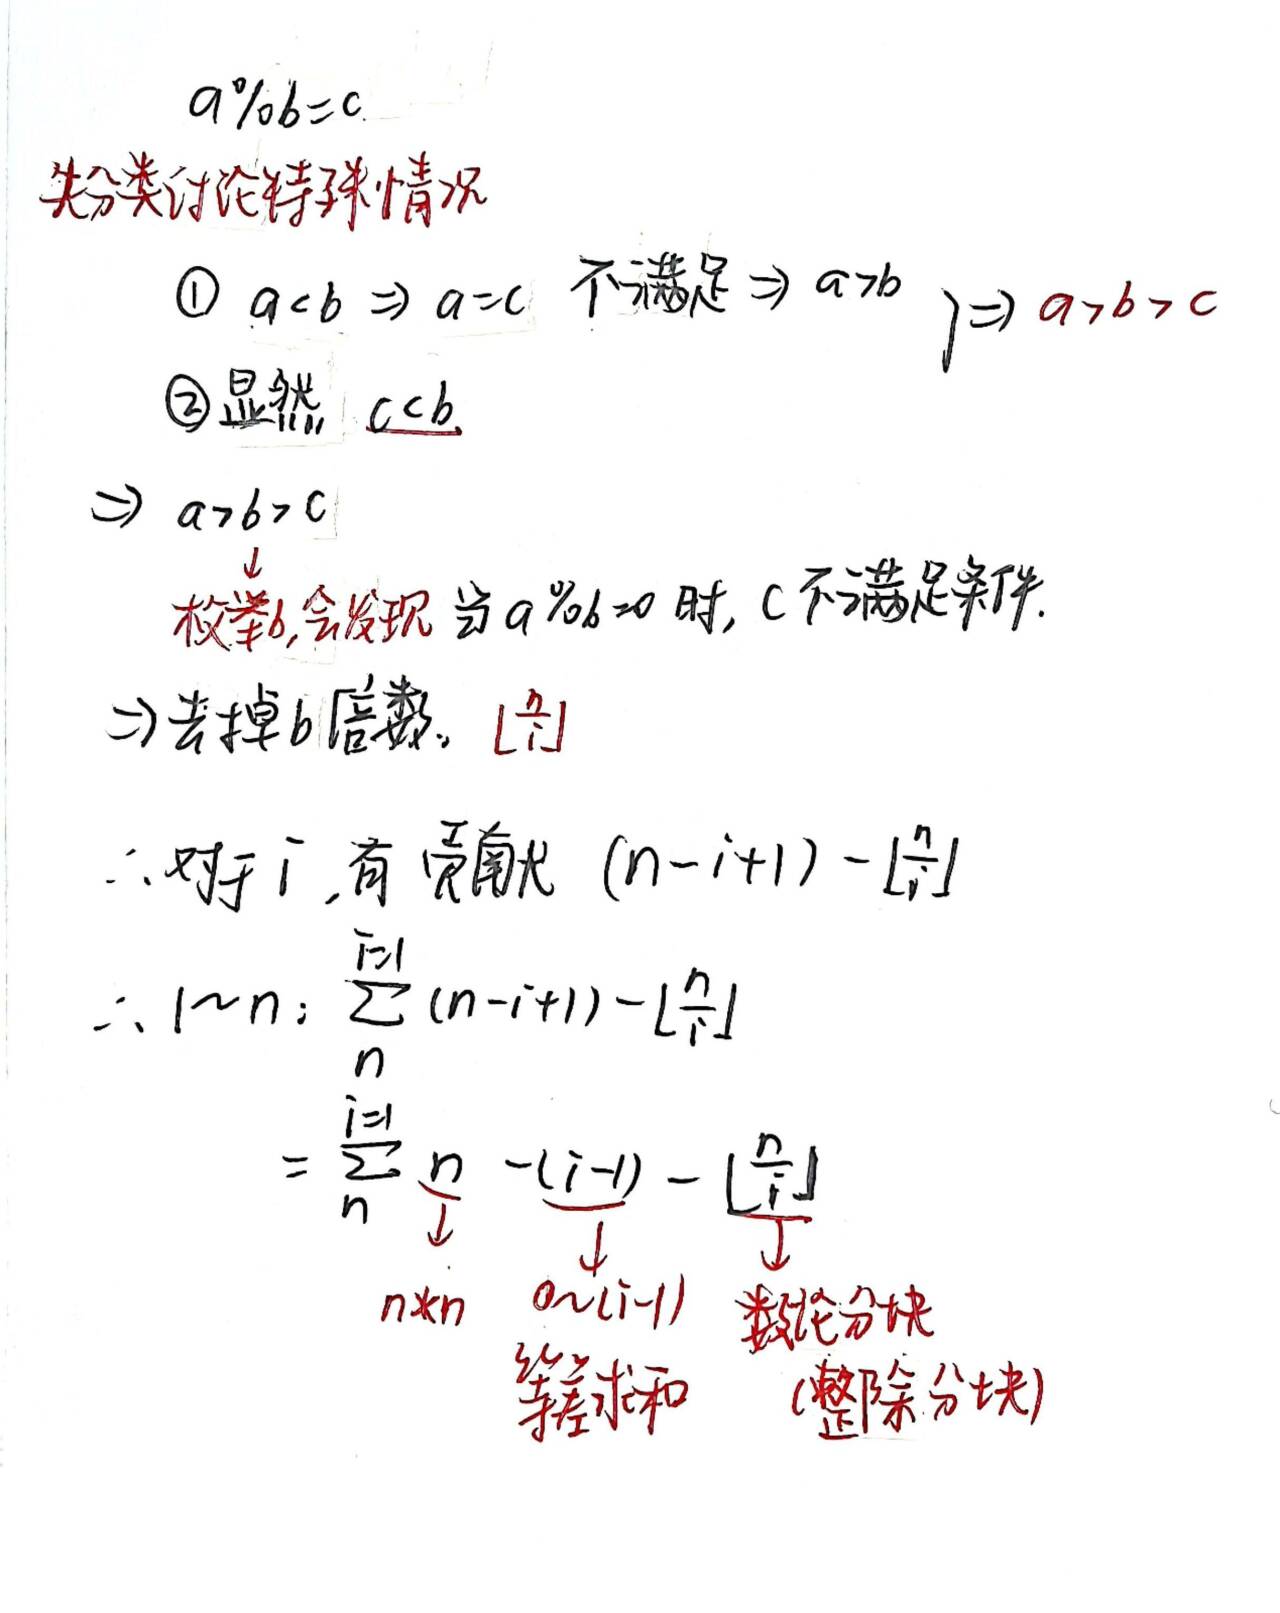 a%b=c
先分类讨论特殊情况
① a<b ⇒ a=c 不满足 ⇒ a>b } ⇒ a>b>c
② 显然 c<b
⇒ a>b>c
↓
枚举b,会发现 当a%b=0时, c不满足条件.
⇒ 去掉b倍数。 ⌊n/i⌋
∴ 对于i,有贡献 (n-i+1) - ⌊n/i⌋
i=1
∴ 1~n: ∑ (n-i+1) - ⌊n/i⌋
n
i=1
= ∑ n -(i-1) - ⌊n/i⌋
n
↓ ↓ ↓
n*n 0~(i-1) 数论分块
等差求和 (整除分块)